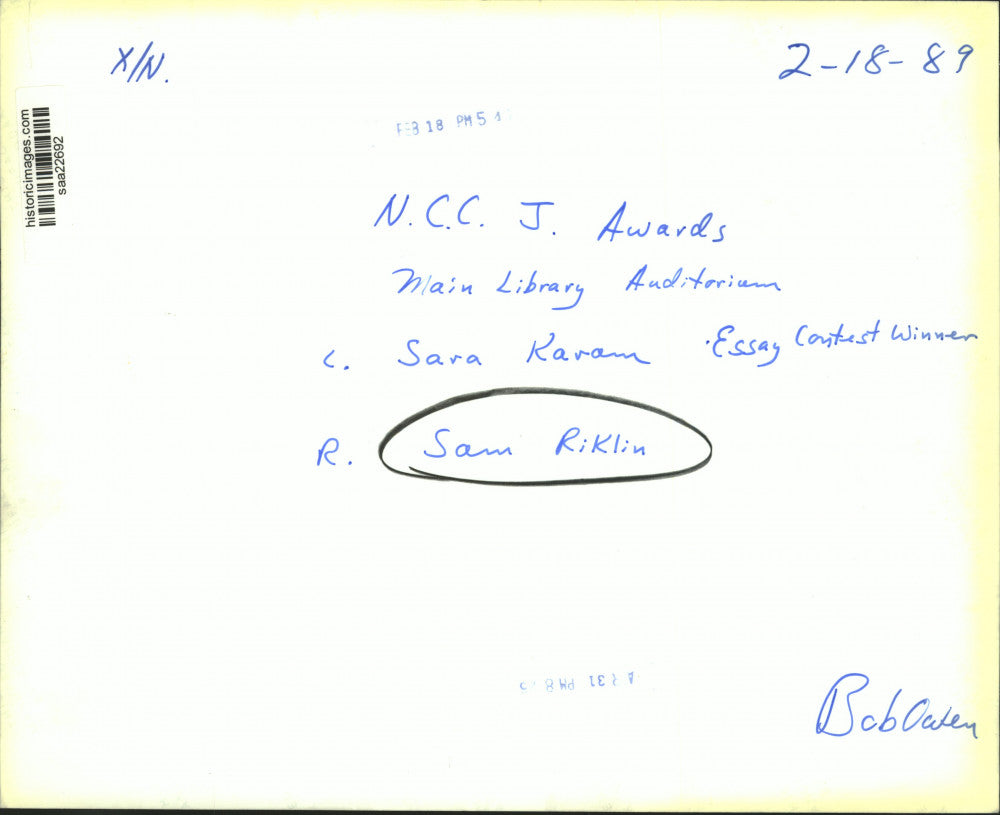 X/N.
2-18-89
historicimages.com
saa22692
FEB 18 PM 5
N.C.C. J. Awards
Main Library Auditorium
L. Sara Karam Essay Contest Winner
R. Sam Riklin
31 PM 8
Bob Owen